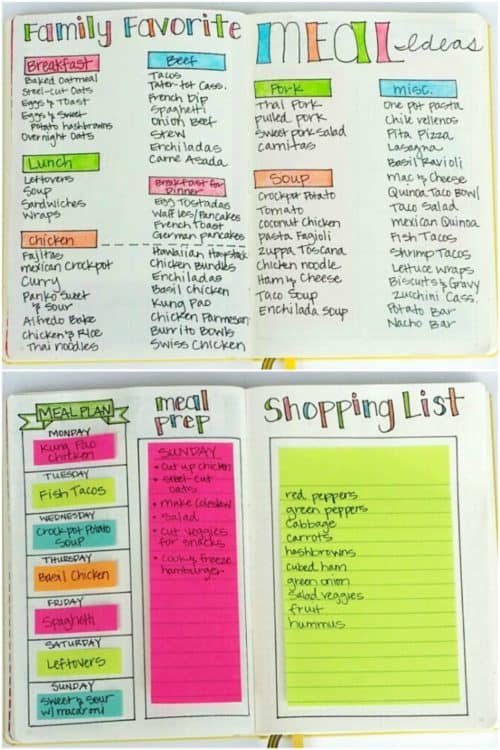 Family Favorite
MEAL Ideas
Breakfast
Baked Oatmeal
Steel-cut Oats
Eggs & Toast
Eggs & Sweet
Potato hashbrowns
Overnight Oats
Lunch
Leftovers
Soup
Sandwiches
Wraps
Chicken
Fajitas
mexican Crockpot
Curry
Panko Sweet
& Sour
Alfredo Bake
Chicken & Rice
Thai noodles
Beef
Tacos
Tater-tot Cass.
French Dip
Spaghetti
Onion Beef
Stew
Enchiladas
Carne Asada
Breakfast for
Dinner
Egg Tostadas
Waffles/Pancakes
French Toast
German pancakes
Hawaiian Haystack
Chicken Bundles
Enchiladas
Basil Chicken
Kung Pao
Chicken Parmesan
Burrito Bowls
Swiss Chicken
Pork
Thai Pork
pulled pork
Sweet pork salad
carnitas
Soup
Crockpot Potato
Tomato
coconut Chicken
Pasta Fagioli
Zuppa Toscana
Chicken noodle
Ham & Cheese
Taco Soup
Enchilada Soup
misc.
One pot pasta
Chile rellenos
Pita Pizza
Lasagna
Basil Ravioli
mac & Cheese
Quinoa Taco Bowl
Taco Salad
mexican Quinoa
Fish Tacos
Shrimp Tacos
Lettuce wraps
Biscuits & Gravy
Zucchini Cass.
Potato Bar
Nacho Bar
MEAL PLAN
MONDAY
Kung Pao
Chicken
TUESDAY
Fish Tacos
WEDNESDAY
Crockpot Potato
Soup
THURSDAY
Basil Chicken
FRIDAY
Spaghetti
SATURDAY
Leftovers
SUNDAY
Sweet & Sour
w/ macaroni
meal
prep
SUNDAY
• cut up chicken
• steel-cut
oats
• make coleslaw
• salad
• cut veggies
for snacks
• cook & freeze
hamburger
Shopping List
red peppers
green peppers
cabbage
carrots
hashbrowns
cubed ham
green onion
salad veggies
fruit
hummus